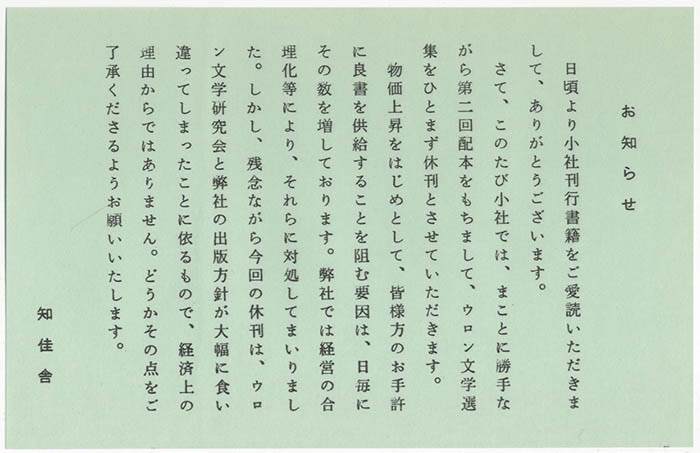 お知らせ
日頃より小社刊行書籍をご愛読いただきま
して、ありがとうございます。
さて、このたび小社では、まことに勝手な
がら第二回配本をもちまして、ウロン文学選
集をひとまず休刊とさせていただきます。
物価上昇をはじめとして、皆様方のお手許
に良書を供給することを阻む要因は、日毎に
その数を増しております。弊社では経営の合
理化等により、それらに対処してまいりまし
た。しかし、残念ながら今回の休刊は、ウロ
ン文学研究会と弊社の出版方針が大幅に食い
違ってしまったことに依るもので、経済上の
理由からではありません。どうかその点をご
了承くださるようお願いいたします。
知佳舎